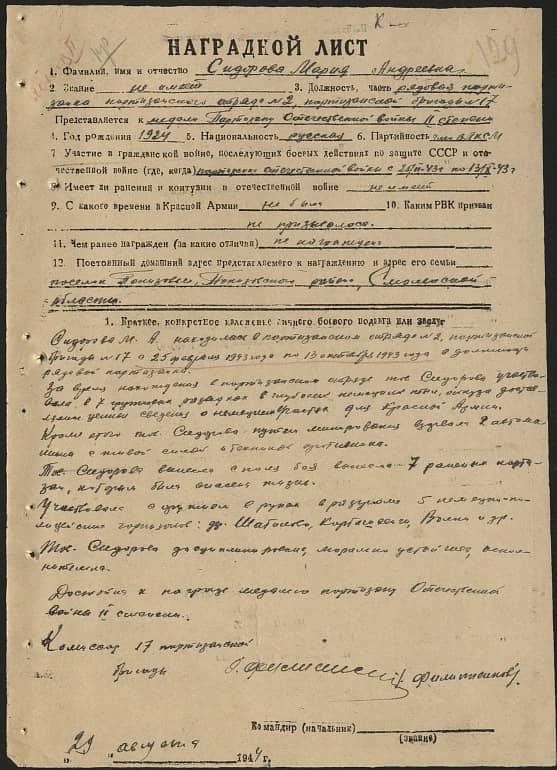 129
НАГРАДНОЙ ЛИСТ
1. Фамилия, имя и отчество Сидорова Мария Андреевна
2. Звание не имеет 3. Должность, часть рядовой парти-
занка партизанского отряда №2, партизанской бригады №17
Представляется к медали Партизану Отечественной войны II степени
4. Год рождения 1924 5. Национальность русская 6. Партийность член ВЛКСМ
7 Участие в гражданской войне, последующих боевых действиях по защите СССР и оте-
чественной войне (где, когда) партизанка Отечественной войны с 25/II-43г по 13/X-43г
8. Имеет ли ранения и контузии в отечественной войне не имеет
9. С какого времени в Красной Армии не был 10. Каким РВК призван
не призывалась.
11. Чем ранее награжден (за какие отличия) не награжден
12. Постоянный домашний адрес представляемого к награждению и адрес его семьи
поселок Понизовье, Понизовского района, Смоленской
области.
1. Краткое, конкретное изложение личного боевого подвига или заслуг
Сидорова М. А. находилась в партизанском отряде №2, партизанской
бригады №17 с 25 февраля 1943 года по 13 октября 1943 года в должности
рядовой партизанки.
За время нахождения в партизанском отряде тов. Сидорова участво-
вала в 7 разведках в немецких откуда достав-
ляла ценные сведения о немецких для Красной Армии.
Кроме этого тов. Сидорова путем минирования взорвала 2 автома-
шины с живой силой и техникой противника.
Тов. Сидорова вынесла с поля боя 7 раненых парти-
зан, которым была спасена жизнь.
Участвовала с оружием в руках в разгроме 5 немецко-по-
лицейских гарнизонов: др. и др.
Тов. Сидорова дисциплинирована, морально устойчива,
Достойна к награде медалью партизану Отечественной
войны II степени.
Комиссар 17 партизанской
бригады
Командир (начальник)
(звание)
"29" августа 1944 г.